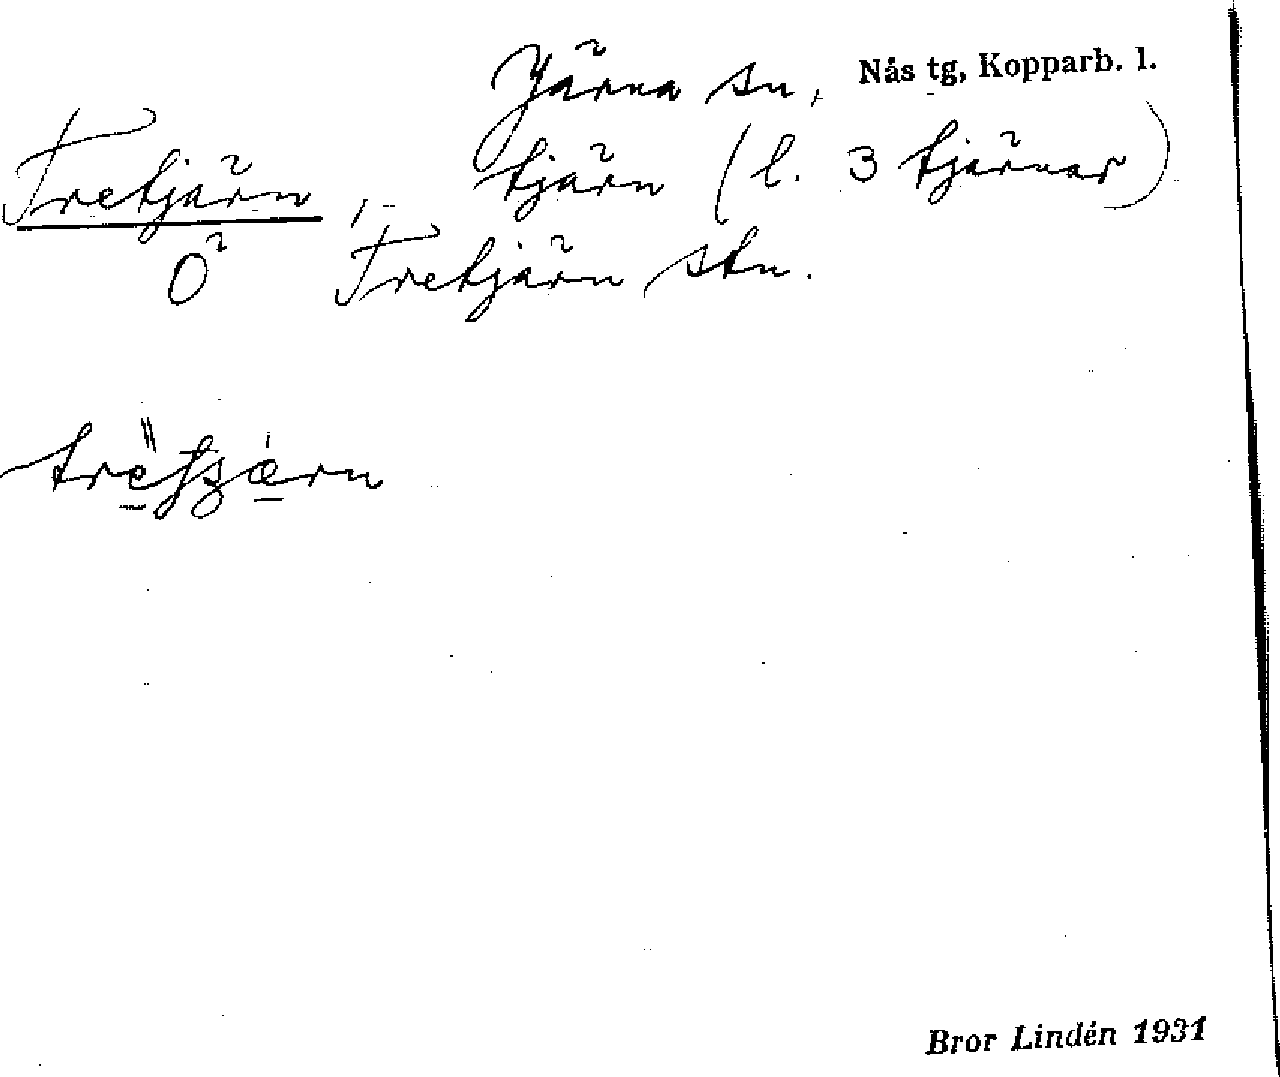 Järna sn, Nås tg, Kopparb. l.
Tretjärn, tjärn (l. 3 tjärnar)
Ö Tretjärn stn.
Bror Lindén 1931